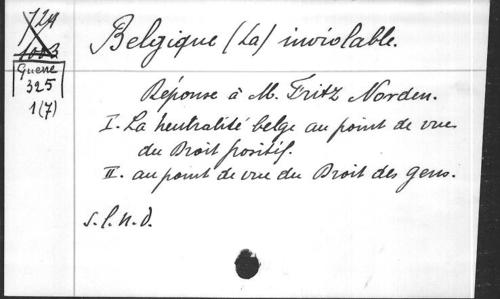 724
1003
Guerre
325
1(7)
Belgique (La) inviolable.
Réponse à M. Fritz Norden.
I. La neutralité belge au point de vue
du Droit positif.
II. au point de vue du Droit des gens.
s.l.n.d.